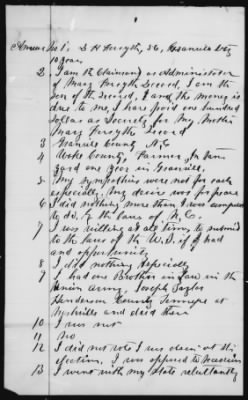 Answer No 1. S H Forsyth, 36, Granville Cty
10 years
2 I am the Claimant as Administrator
of Mary Forsyth Deceased, I am the
son of the Deceased, and the money is
due to me, I have paid one hundred
Dollars as Security for my Mother
Mary Forsyth Deceased
3 Granville County N.C.
4 County, Farmer,
one year in Granville,
5 My sympathies were not for each
especially, My desire was for peace
6 I did nothing more than I was compeled
to do, by the laws of N.C.
7 I was willing at all times to submit
to the laws of the U.S. if I had
and oppertunity
8 I did nothing especially
9 I had one Brother in law in the
Union army. Joseph Taylor
Henderson County
Nashville and died there
10 I was not
11 No
12 I did not vote I was at the
election, I was opposed to secession
13 I went with my state reluctantly